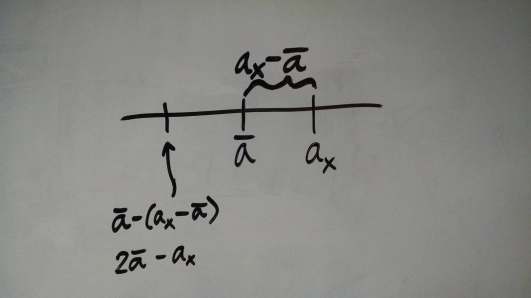 aₓ - a̅
a̅ aₓ
a̅ - (aₓ - a̅)
2a̅ - aₓ